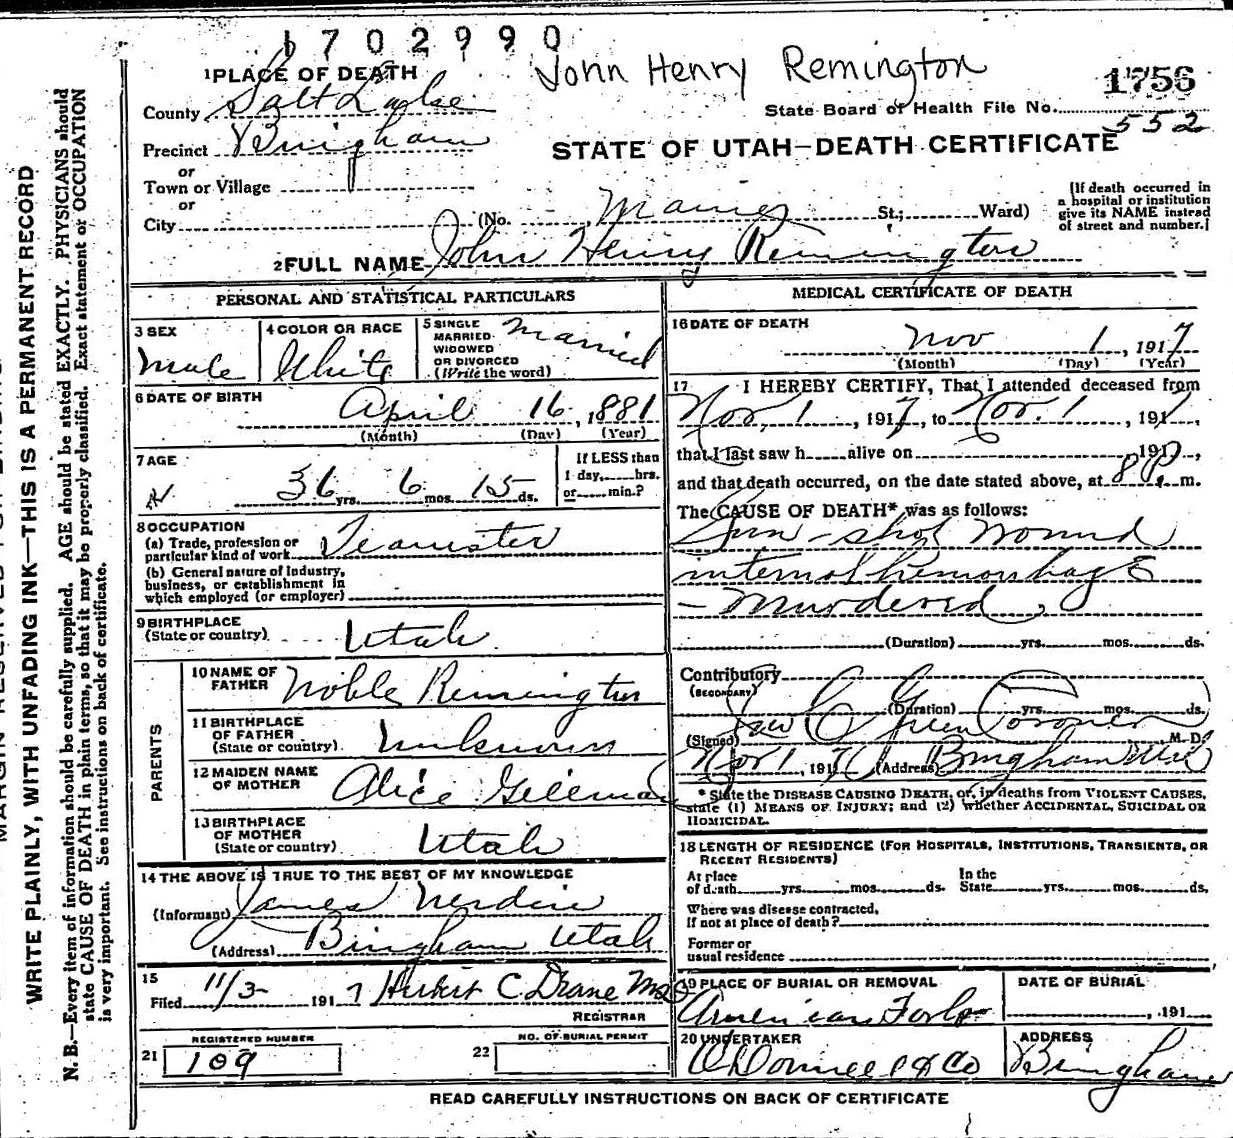 1702990
John Henry Remington
1756
1 PLACE OF DEATH
County Salt Lake
State Board of Health File No. 552
Precinct Bingham
STATE OF UTAH—DEATH CERTIFICATE
or
Town or Village
or
City (No. St.; Ward)
(If death occurred in a hospital or institution give its NAME instead of street and number.)
2 FULL NAME John Henry Remington
PERSONAL AND STATISTICAL PARTICULARS
3 SEX
Male
4 COLOR OR RACE
White
5 SINGLE
MARRIED
WIDOWED
OR DIVORCED
(Write the word)
Married
6 DATE OF BIRTH
April 16, 1881
(Month) (Day) (Year)
7 AGE
36 yrs. 6 mos. 15 ds.
If LESS than
1 day, hrs.
or min.?
8 OCCUPATION
(a) Trade, profession or
particular kind of work Teamster
(b) General nature of industry,
business, or establishment in
which employed (or employer)
9 BIRTHPLACE
(State or country) Utah
PARENTS
10 NAME OF
FATHER Noble Remington
11 BIRTHPLACE
OF FATHER
(State or country) Unknown
12 MAIDEN NAME
OF MOTHER Alice
13 BIRTHPLACE
OF MOTHER
(State or country) Utah
14 THE ABOVE IS TRUE TO THE BEST OF MY KNOWLEDGE
(Informant) James
(Address) Bingham Utah
15
Filed 11/3- 1917 Herbert C Drane MD
REGISTRAR
REGISTERED NUMBER
21 109
NO. OF BURIAL PERMIT
22
MEDICAL CERTIFICATE OF DEATH
16 DATE OF DEATH
Nov 1, 1917
(Month) (Day) (Year)
17 I HEREBY CERTIFY, That I attended deceased from
Nov. 1, 1917, to Nov. 1, 191
that I last saw h alive on , 1917,
and that death occurred, on the date stated above, at 8 P. m.
The CAUSE OF DEATH* was as follows:
Gun-shot wound
internal hemorrhage
- Murdered,
(Duration) yrs. mos. ds.
Contributory
(SECONDARY)
(Duration) yrs. mos. ds.
(Signed) C Green Coroner M.D.
Nov 1, 1917 (Address) Bingham Utah
*State the DISEASE CAUSING DEATH, or, in deaths from VIOLENT CAUSES,
state (1) MEANS OF INJURY; and (2) whether ACCIDENTAL, SUICIDAL OR
HOMICIDAL.
18 LENGTH OF RESIDENCE (FOR HOSPITALS, INSTITUTIONS, TRANSIENTS, OR
RECENT RESIDENTS)
At place
of death yrs. mos. ds.
In the
State yrs. mos. ds.
Where was disease contracted,
If not at place of death?
Former or
usual residence
19 PLACE OF BURIAL OR REMOVAL
American Fork
DATE OF BURIAL
, 191
20 UNDERTAKER
O'Donnell & Co
ADDRESS
Bingham
READ CAREFULLY INSTRUCTIONS ON BACK OF CERTIFICATE
WRITE PLAINLY, WITH UNFADING INK—THIS IS A PERMANENT RECORD
N. B.—Every item of information should be carefully supplied. AGE should be stated EXACTLY. PHYSICIANS should
state CAUSE OF DEATH in plain terms, so that it may be properly classified. Exact statement of OCCUPATION
is very important. See instructions on back of certificate.